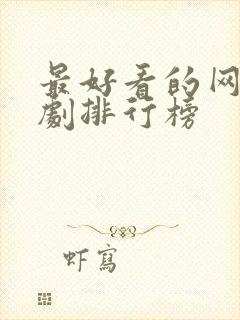 最好看的网
劇排行榜
虾寫